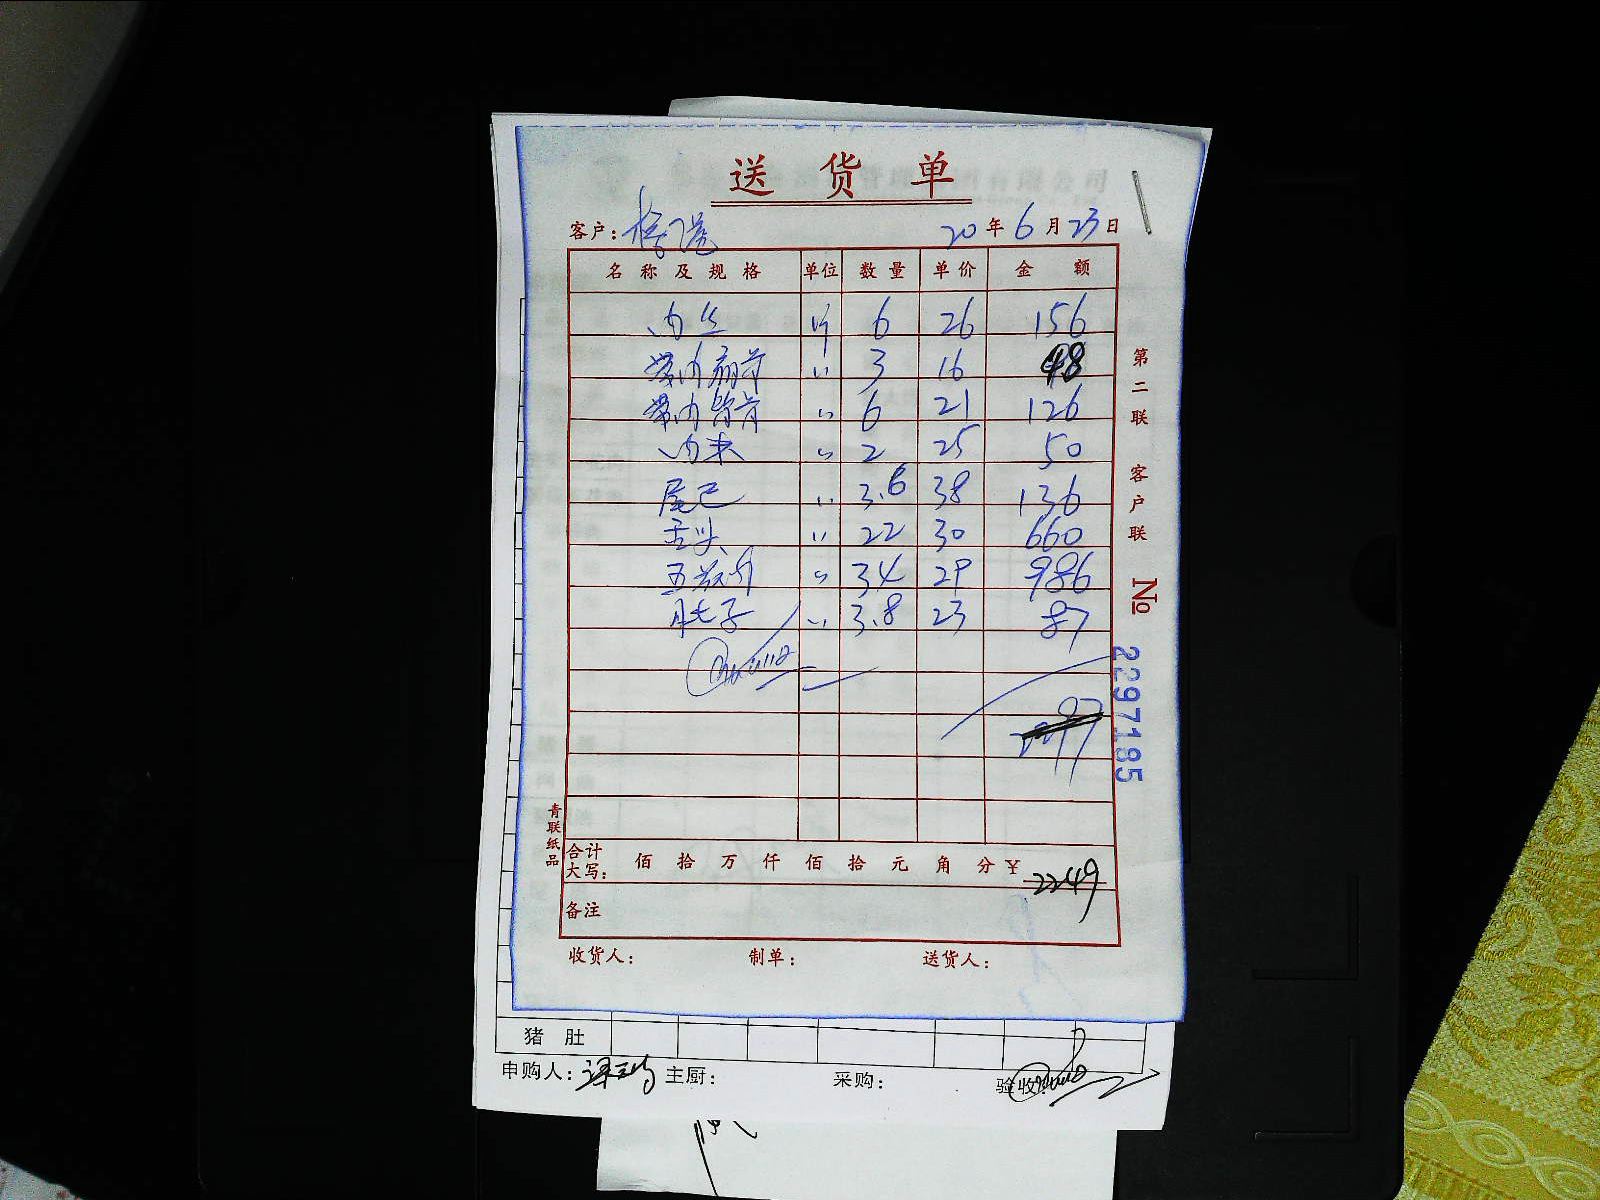 送货单
客户: 20年6月23日
名称及规格 单位 数量 单价 金额
肉丝 斤 6 26 156
带肉扇骨 〃 3 16 48
带肉背骨 〃 6 21 126
肉末 〃 2 25 50
尾巴 〃 3.6 38 136
舌头 〃 22 30 660
五花肉 〃 34 29 986
肚子 〃 3.8 23 87
合计大写: 佰 拾 万 仟 佰 拾 元 角 分 ¥ 2249
备注
收货人: 制单: 送货人:
第二联 客户联 № 2297185
青联纸品
猪肚
申购人: 主厨: 采购: 验收